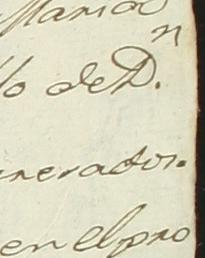 Maria
lo de D.n
nerador.
en el pro